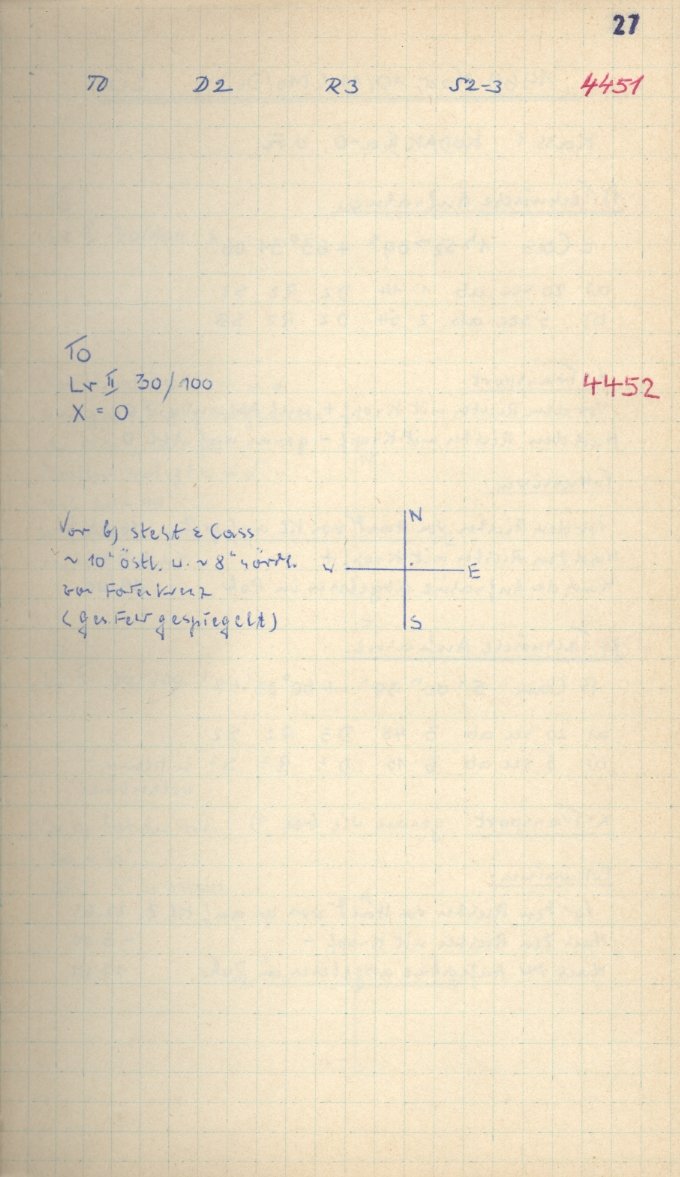 27
T0 D2 R3 S2-3 4451
T0
Lr II 30/100 4452
X = 0
Vor b) steht ε Cass
~ 10" östl. u. ~ 8" nördl.
von Fadenkreuz
(ges. Feld gespiegelt)
N
W E
S